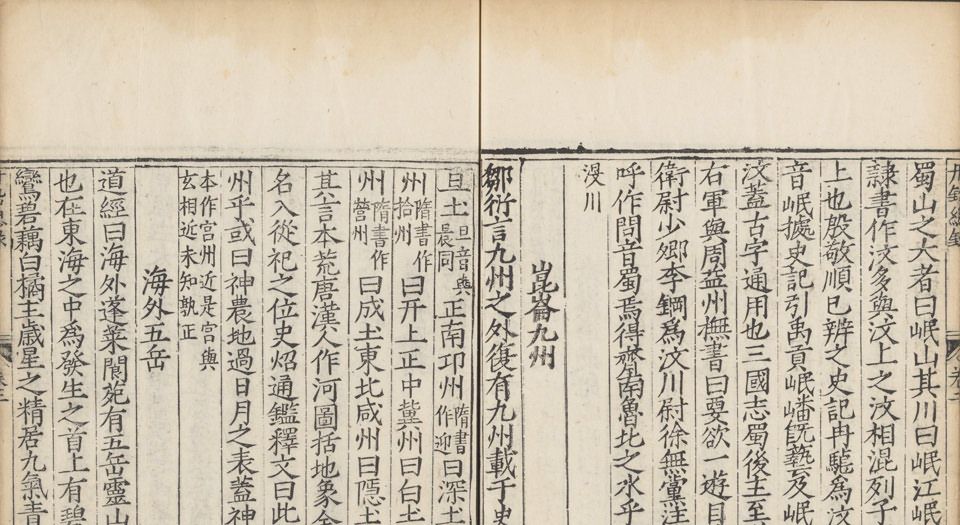 蜀山之大者曰岷山其川曰岷江岷
隷書作汶多與汶上之汶相混列子
上也殷敬順已辨之史記冉駹為汶
音岷據史記引禹貢岷嶓旣藝及岷
汶蓋古字通用也三國志蜀後主至
右軍與周益州撫書曰要欲一遊目
衛尉少卿李鋼為汶川尉徐無黨注
呼作問音蜀焉得齊南魯北之水乎
川
崑崙九州
鄒衍言九州之外復有九州載于史
旦土旦音與晨同正南卭州隋書作迎曰深土
州隋書作拾州曰开上正中冀州曰白土
州隋書作營州曰成土東北咸州曰隱土
其言本荒唐漢人作河圖括地象全
名入從祀之位史炤通鑑釋文曰此
州乎或曰神農地過日月之表蓋神
本作宫州近是宫與玄相近未知孰正
海外五岳
道經曰海外蓬萊閬苑有五岳靈山
也在東海之中為發生之首上有碧
鸞碧藕白橘主歲星之精居九氣青